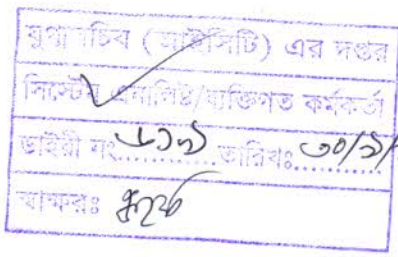 যুগ্মসচিব (আইসিটি) এর দপ্তর
সিস্টেম এনালিস্ট/ব্যক্তিগত কর্মকর্তা
ডাইরী নং............তারিখঃ ৩০/৯/
স্বাক্ষরঃ